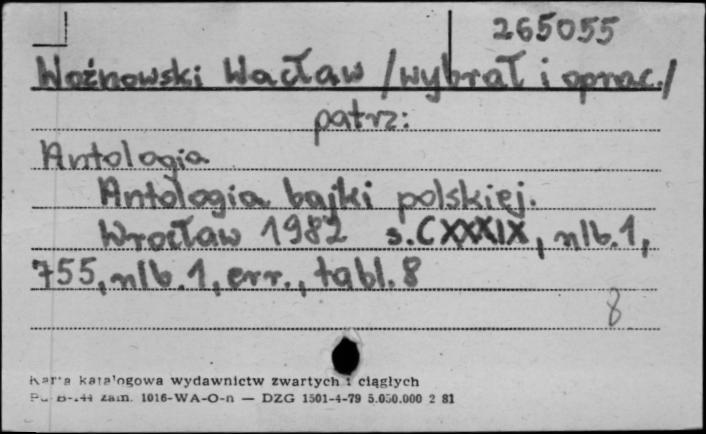 265055
Woźnowski Wacław /wybrał i oprac./
patrz:
Antologia
Antologia bajki polskiej.
Wrocław 1982 s. CXXXIX, nlb. 1,
755, nlb. 1, err., tabl. 8
8
Karta katalogowa wydawnictw zwartych i ciągłych
zam. 1016-WA-O-n — DZG 1501-4-79 5.050.000 2 81